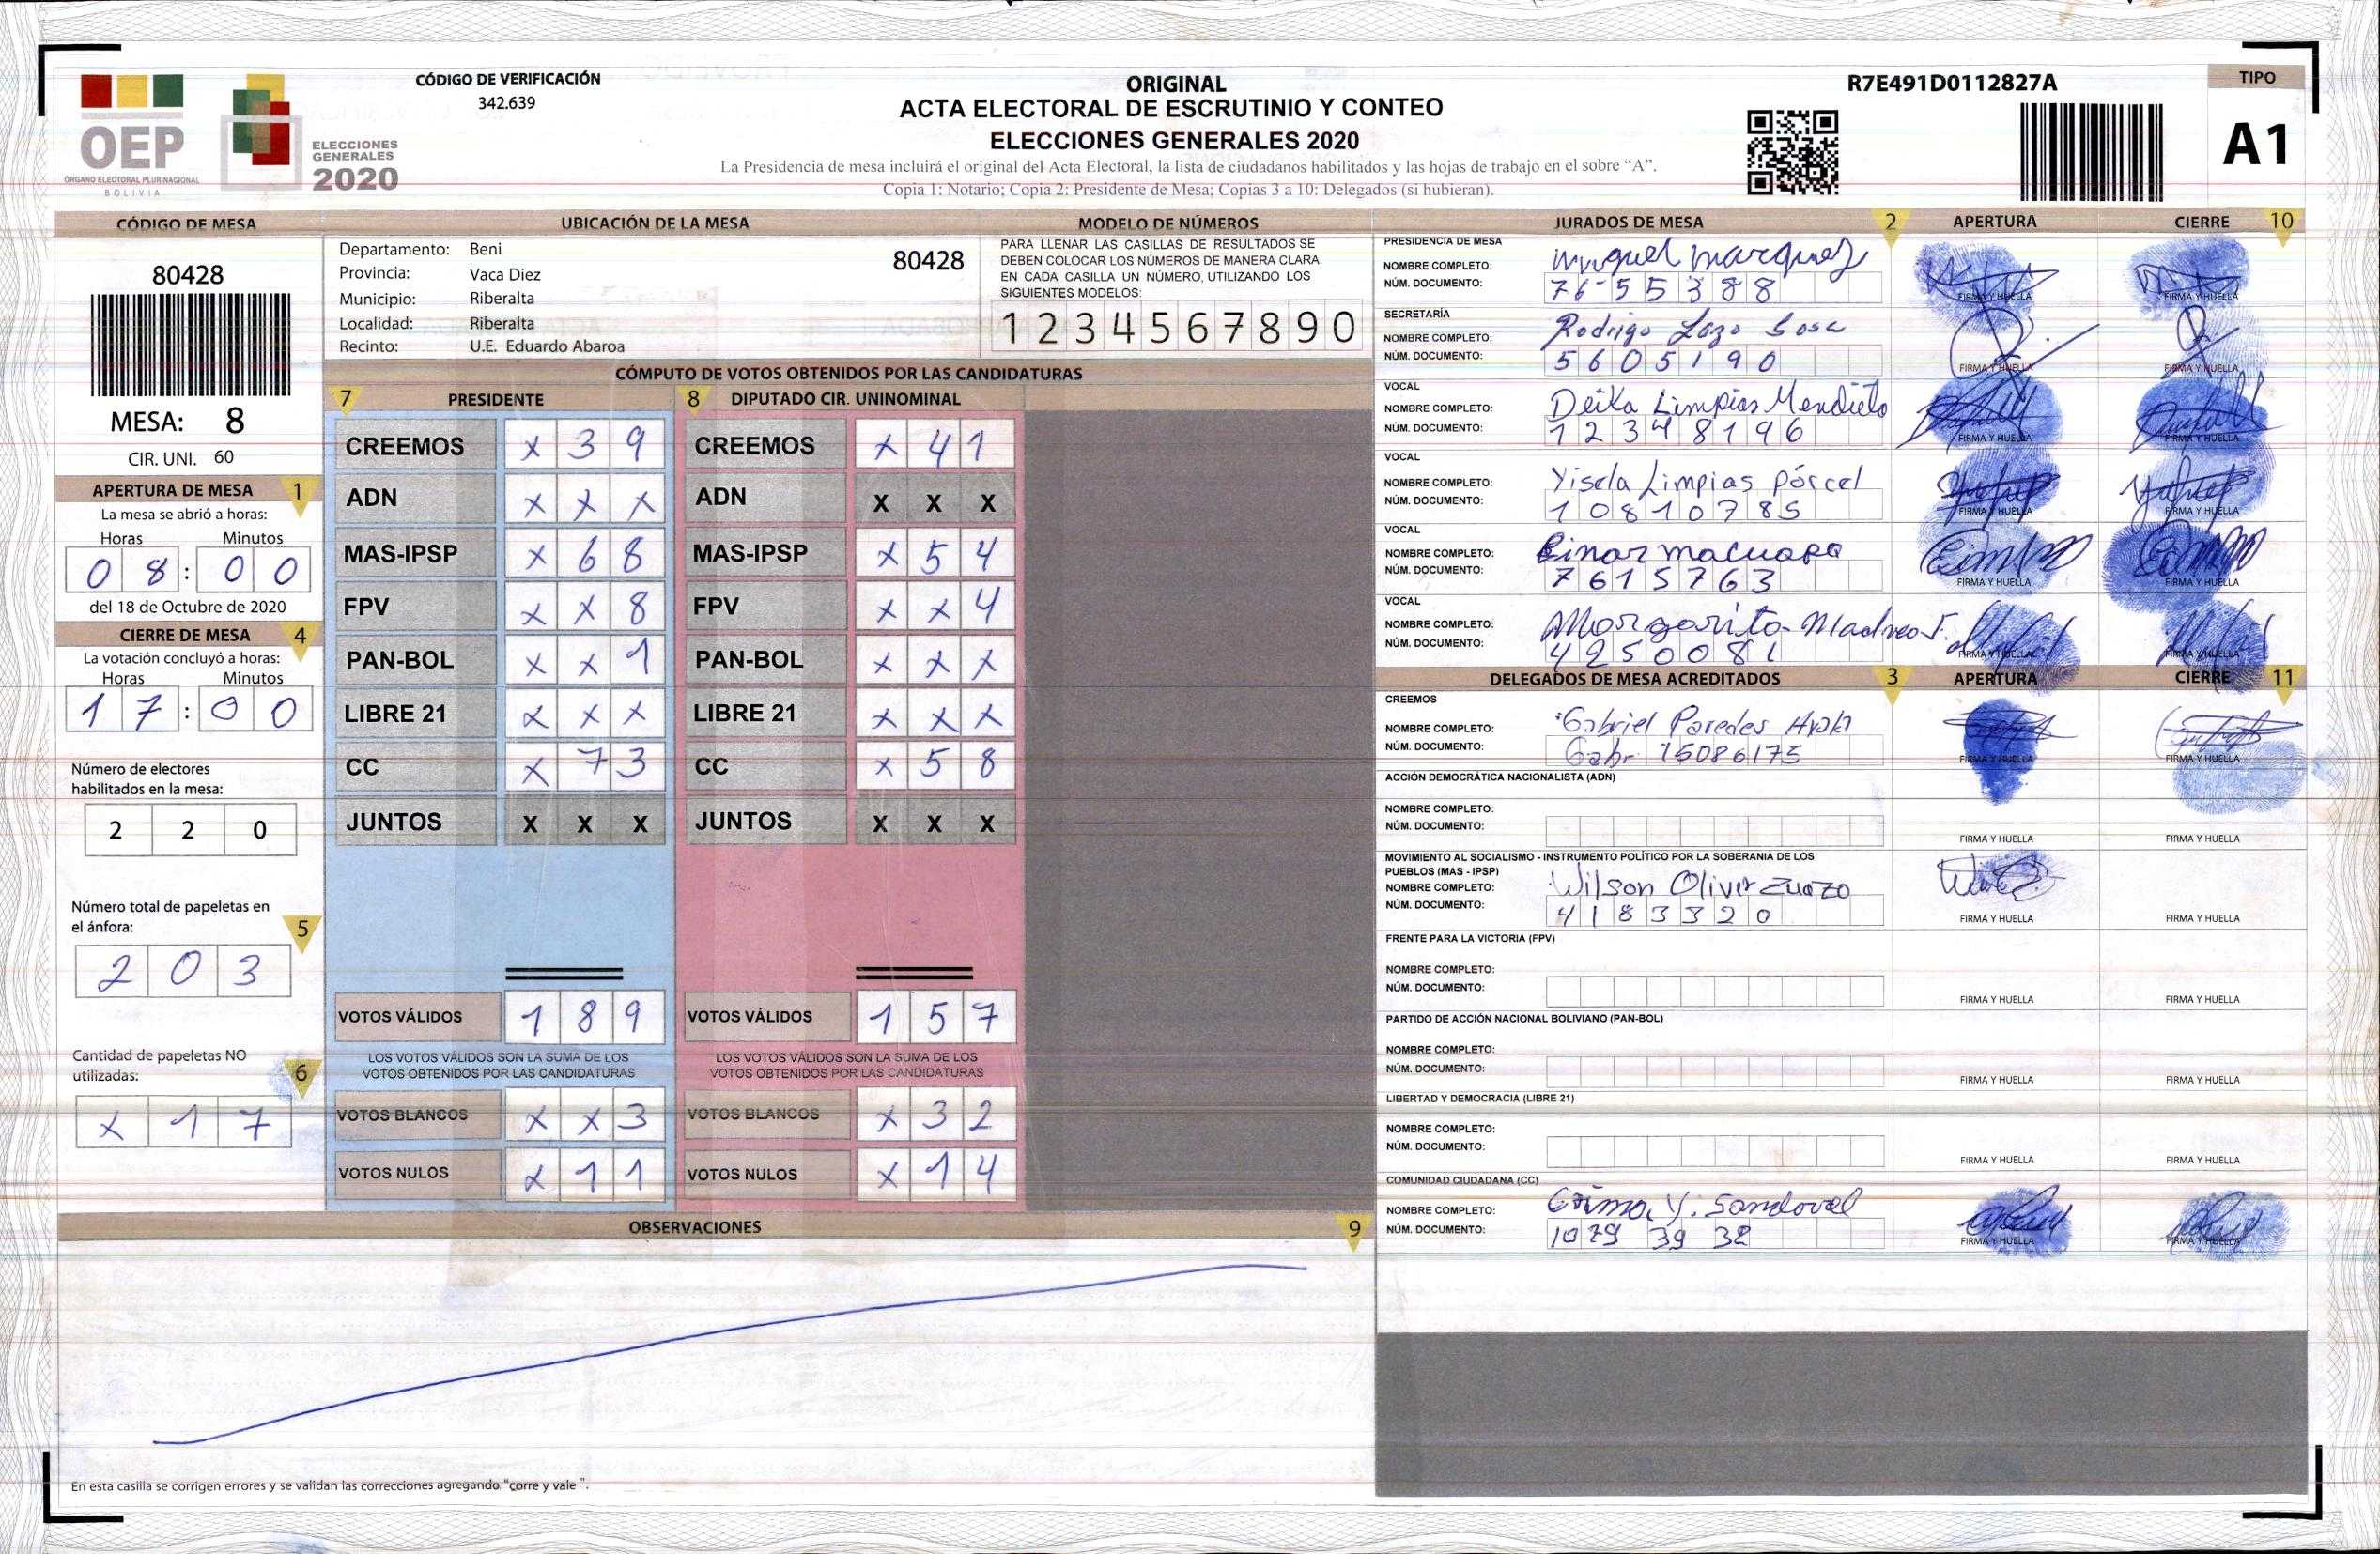 CÓDIGO DE VERIFICACIÓN
342.639
ORIGINAL
ACTA ELECTORAL DE ESCRUTINIO Y CONTEO
ELECCIONES GENERALES 2020
La Presidencia de mesa incluirá el original del Acta Electoral, la lista de ciudadanos habilitados y las hojas de trabajo en el sobre “A”.
Copia 1: Notario; Copia 2: Presidente de Mesa; Copias 3 a 10: Delegados (si hubieran).
R7E491D0112827A
TIPO
A1
OEP
ÓRGANO ELECTORAL PLURINACIONAL
BOLIVIA
ELECCIONES
GENERALES
2020
CÓDIGO DE MESA
80428
MESA: 8
CIR. UNI. 60
APERTURA DE MESA 1
La mesa se abrió a horas:
Horas Minutos
0 8 : 0 0
del 18 de Octubre de 2020
CIERRE DE MESA 4
La votación concluyó a horas:
Horas Minutos
1 7 : 0 0
Número de electores
habilitados en la mesa:
2 2 0
Número total de papeletas en
el ánfora: 5
2 0 3
Cantidad de papeletas NO
utilizadas: 6
X 1 7
UBICACIÓN DE LA MESA
Departamento: Beni
80428
Provincia: Vaca Diez
Municipio: Riberalta
Localidad: Riberalta
Recinto: U.E. Eduardo Abaroa
MODELO DE NÚMEROS
PARA LLENAR LAS CASILLAS DE RESULTADOS SE
DEBEN COLOCAR LOS NÚMEROS DE MANERA CLARA.
EN CADA CASILLA UN NÚMERO, UTILIZANDO LOS
SIGUIENTES MODELOS:
1 2 3 4 5 6 7 8 9 0
CÓMPUTO DE VOTOS OBTENIDOS POR LAS CANDIDATURAS
7 PRESIDENTE
CREEMOS X 3 9
ADN X X X
MAS-IPSP X 6 8
FPV X X 8
PAN-BOL X X 1
LIBRE 21 X X X
CC X 7 3
JUNTOS X X X
VOTOS VÁLIDOS 1 8 9
LOS VOTOS VÁLIDOS SON LA SUMA DE LOS
VOTOS OBTENIDOS POR LAS CANDIDATURAS
VOTOS BLANCOS X X 3
VOTOS NULOS X 1 1
8 DIPUTADO CIR. UNINOMINAL
CREEMOS X 4 1
ADN X X X
MAS-IPSP X 5 4
FPV X X 4
PAN-BOL X X X
LIBRE 21 X X X
CC X 5 8
JUNTOS X X X
VOTOS VÁLIDOS 1 5 7
LOS VOTOS VÁLIDOS SON LA SUMA DE LOS
VOTOS OBTENIDOS POR LAS CANDIDATURAS
VOTOS BLANCOS X 3 2
VOTOS NULOS X 1 4
OBSERVACIONES 9
En esta casilla se corrigen errores y se validan las correcciones agregando "corre y vale".
JURADOS DE MESA 2 APERTURA CIERRE 10
PRESIDENCIA DE MESA
NOMBRE COMPLETO: Miguel Marquez
NÚM. DOCUMENTO: 7655388
FIRMA Y HUELLA FIRMA Y HUELLA
SECRETARÍA
NOMBRE COMPLETO: Rodrigo Lazo Sosa
NÚM. DOCUMENTO: 5605190
FIRMA Y HUELLA FIRMA Y HUELLA
VOCAL
NOMBRE COMPLETO: Deika Limpias Mendieta
NÚM. DOCUMENTO: 12348196
FIRMA Y HUELLA FIRMA Y HUELLA
VOCAL
NOMBRE COMPLETO: Yisela Limpias Pórcel
NÚM. DOCUMENTO: 10810785
FIRMA Y HUELLA FIRMA Y HUELLA
VOCAL
NOMBRE COMPLETO: Einar macuapa
NÚM. DOCUMENTO: 7615763
FIRMA Y HUELLA FIRMA Y HUELLA
VOCAL
NOMBRE COMPLETO: Margarita
NÚM. DOCUMENTO: 4250081
FIRMA Y HUELLA FIRMA Y HUELLA
DELEGADOS DE MESA ACREDITADOS 3 APERTURA CIERRE 11
CREEMOS
NOMBRE COMPLETO: Gabriel Paredes
NÚM. DOCUMENTO: Gabr 15086175
FIRMA Y HUELLA
ACCIÓN DEMOCRÁTICA NACIONALISTA (ADN)
NOMBRE COMPLETO:
NÚM. DOCUMENTO:
FIRMA Y HUELLA FIRMA Y HUELLA
MOVIMIENTO AL SOCIALISMO - INSTRUMENTO POLÍTICO POR LA SOBERANIA DE LOS
PUEBLOS (MAS - IPSP)
NOMBRE COMPLETO: Wilson Oliver Zuazo
NÚM. DOCUMENTO: 4183320
FIRMA Y HUELLA FIRMA Y HUELLA
FRENTE PARA LA VICTORIA (FPV)
NOMBRE COMPLETO:
NÚM. DOCUMENTO:
FIRMA Y HUELLA FIRMA Y HUELLA
PARTIDO DE ACCIÓN NACIONAL BOLIVIANO (PAN-BOL)
NOMBRE COMPLETO:
NÚM. DOCUMENTO:
FIRMA Y HUELLA FIRMA Y HUELLA
LIBERTAD Y DEMOCRACIA (LIBRE 21)
NOMBRE COMPLETO:
NÚM. DOCUMENTO:
FIRMA Y HUELLA FIRMA Y HUELLA
COMUNIDAD CIUDADANA (CC)
NOMBRE COMPLETO: Y. Sandoval
NÚM. DOCUMENTO: 1079 39 38
FIRMA Y HUELLA FIRMA Y HUELLA